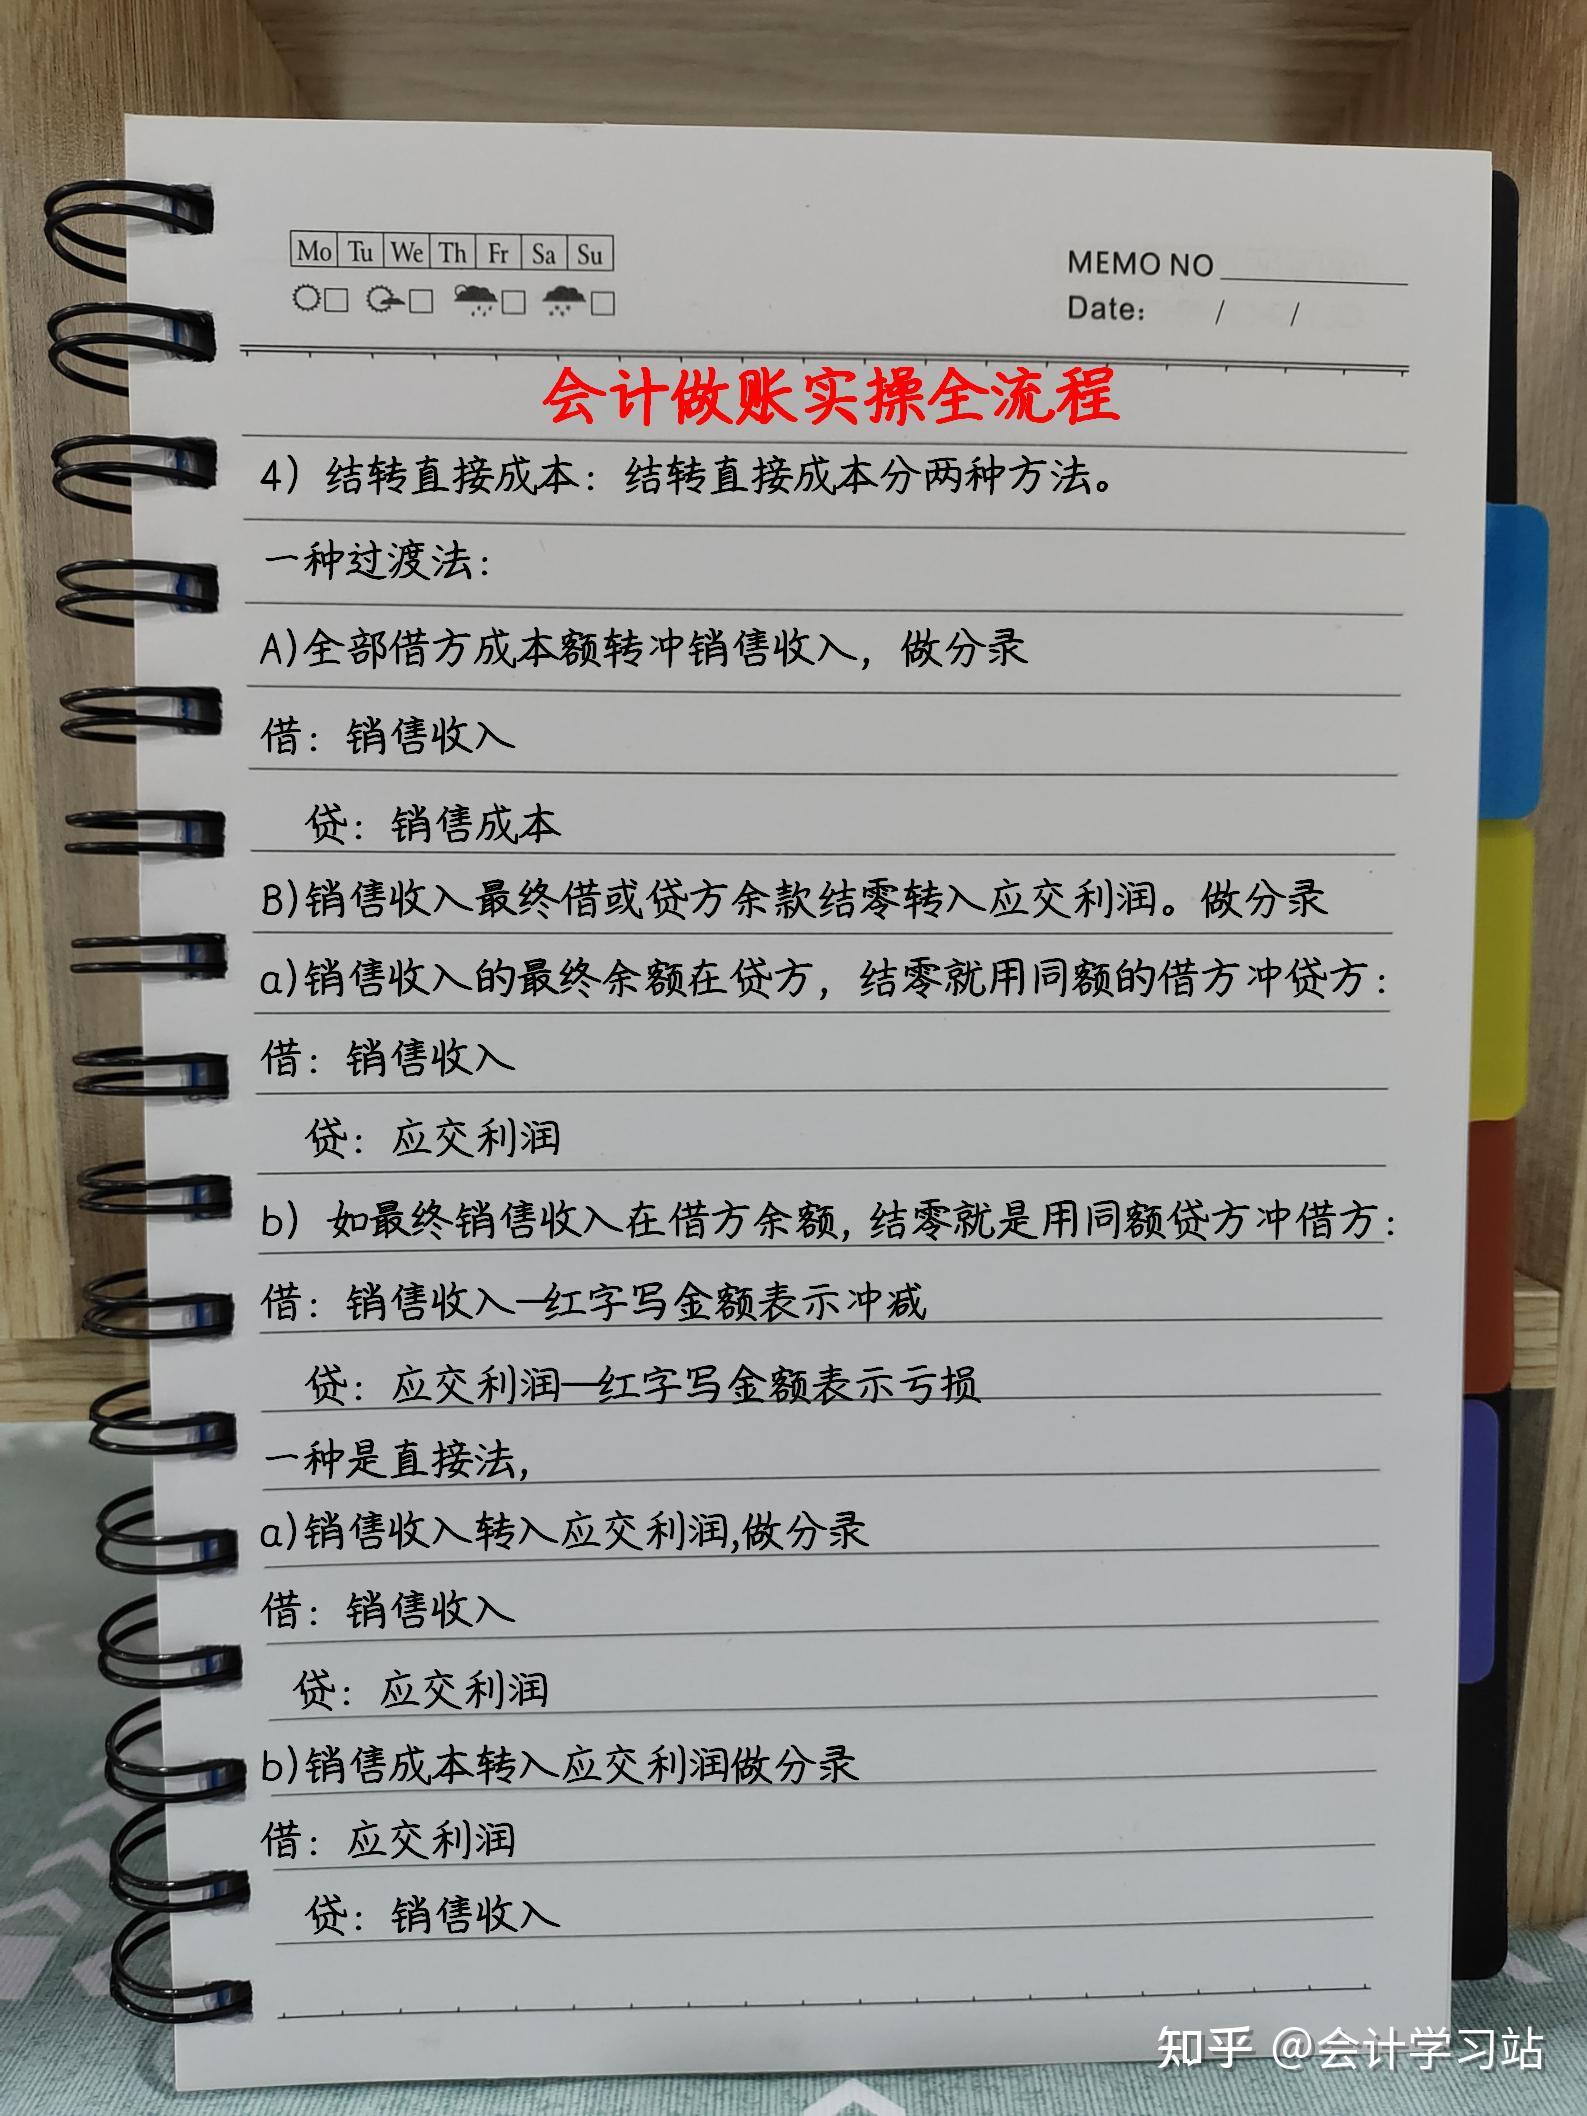 Mo Tu We Th Fr Sa Su
MEMO NO
Date: / /
会计做账实操全流程
4）结转直接成本：结转直接成本分两种方法。
一种过渡法：
A)全部借方成本额转冲销售收入，做分录
借：销售收入
贷：销售成本
B)销售收入最终借或贷方余款结零转入应交利润。做分录
a)销售收入的最终余额在贷方，结零就用同额的借方冲贷方：
借：销售收入
贷：应交利润
b）如最终销售收入在借方余额,结零就是用同额贷方冲借方：
借：销售收入—红字写金额表示冲减
贷：应交利润—红字写金额表示亏损
一种是直接法,
a)销售收入转入应交利润,做分录
借：销售收入
贷：应交利润
b)销售成本转入应交利润做分录
借：应交利润
贷：销售收入
知乎 @会计学习站